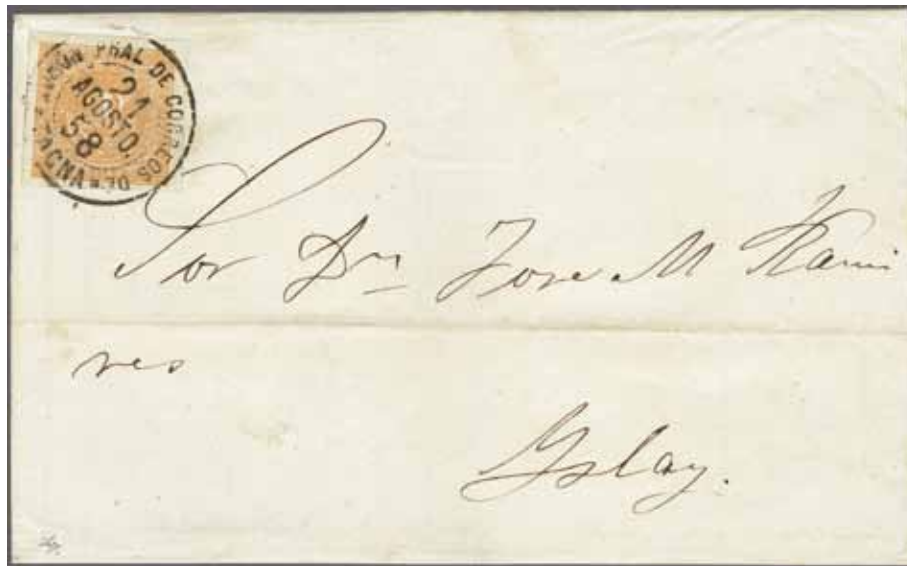 PRAL DE CORREOS
21
AGOSTO.
58
DE TACNA
Sor Dn Jose M Rami
res
Yslay.